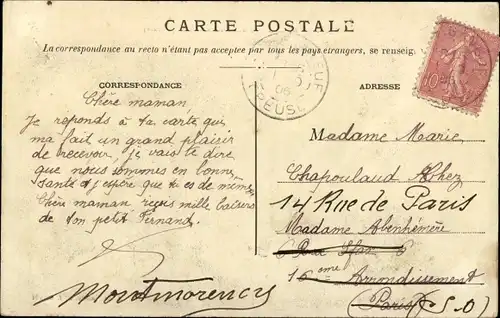 CARTE POSTALE
La correspondance au recto n'étant pas acceptée par tous les pays étrangers, se renseig.
CORRESPONDANCE
ADRESSE
Chère maman
Je reponds à ta carte qui
ma fait un grand plaisir
de recevoir, je vais te dire
que nous sommes en bonne
santé et j'espère que tu es de même
Chère maman reçois mille baisers
de ton petit Fernand.
Montmorency
CREUSE
Madame Marie
Chapoulaud chez
14 Rue de Paris
Madame Abenhémère
6 Rue 6
16eme Arrondissement
(Paris) (S.O)